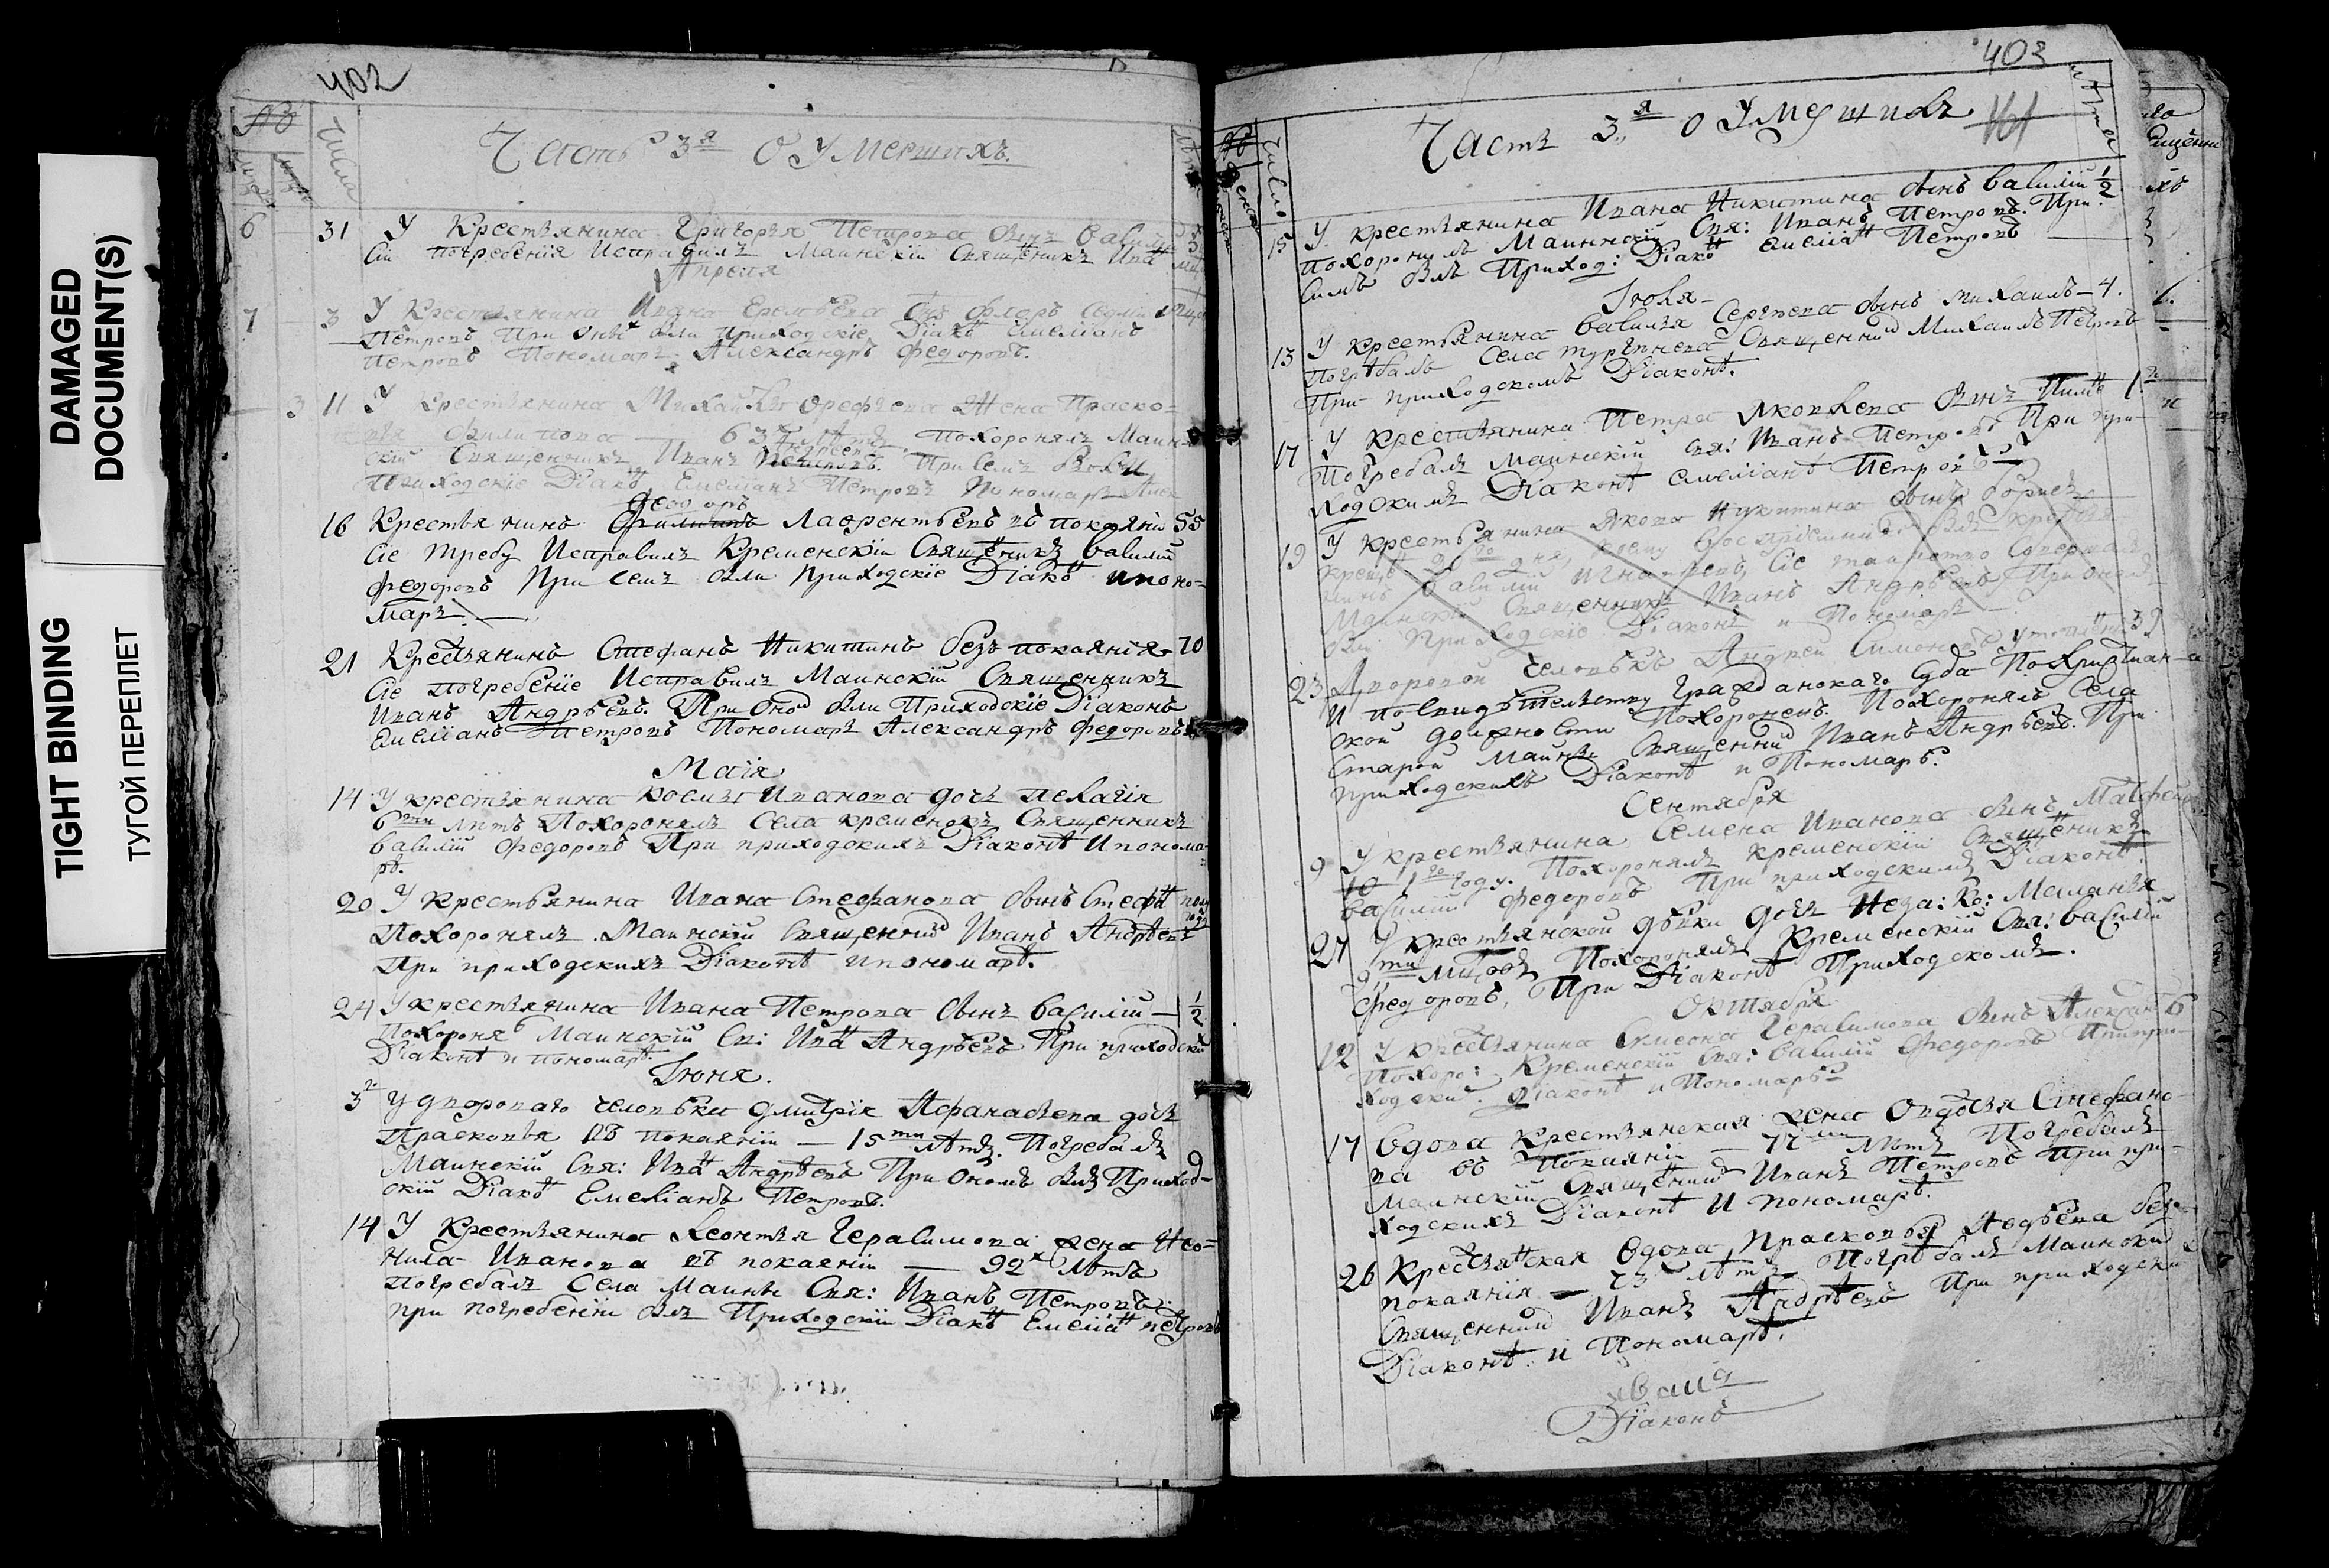 DAMAGED
DOCUMENT(S)
TIGHT BINDING
ТУГОЙ ПЕРЕПЛЕТ
402
№
числа
лѣта
Часть 3я О Умершихъ.
6 31 У Крестьянина Григорья Петрова сынъ Васи
лій погребенія Исправилъ Маинскій Священникъ Иванъ
Апреля
7 3 У Крестьянина Ивана Еремѣева сынъ Флоръ
Петровъ При оны были приходскіе Діаконъ Емеліанъ
Петровъ Пономарь Александръ Федоровъ.
3 11 У Крестьянина Михайлы Орефьева Жена Праско=
вья Филипова — 63 лѣтъ похоронялъ Маин
скій Священникъ Иванъ Андреев Петровъ. При семъ были
Приходскіе Діаконъ Емеліанъ Петровъ Пономарь Алек
Федоръ
16 Крестьянинъ Филиппъ Лаврентьевъ въ покаяніи 55
Сіе требу Исправилъ Кременскій Священникъ Василій
Федоровъ При семъ были Приходскіе Діаконъ и поно-
марь.
21 Крестьянинъ Стефанъ Никитинъ безъ покаянія 70
Сіе погребеніе Исправилъ Маинскій Священникъ
Иванъ Андрѣевъ. При оной были Приходскіе Діаконъ
Емеліанъ Петровъ Пономарь Александръ Федоровъ
Маія
14 У крестьянина Космы Иванова дочь Пелагія
6ти лѣтъ Похоронялъ Села Кременокъ Священникъ
Василій Федоровъ При приходскихъ Діаконѣ и понома-
рѣ.
20 У Крестьянина Ивана Стефанова сынъ Стефанъ пол
года
Похоронялъ Маинскій Священникъ Иванъ Андрѣевъ
При приходскихъ Діаконѣ и пономарѣ.
24 У крестьянина Ивана Петрова сынъ Василій — 1/2
Похоронялъ Маинскій Св: Иванъ Андрѣевъ При приходскихъ
Діаконѣ и пономарѣ.
Іюня.
3го У двороваго человѣка Дмитрія Афанасьева дочь
Прасковья въ покаяніи — 15ти лѣтъ. Погребалъ
Маинскій Свя: Иванъ Андрѣевъ При ономъ былъ Приход-
скій Діаконъ Емеліанъ Петровъ.
14 У Крестьянина Леонтья Герасимова жена Нео=
нила Иванова въ покаяніи — 92х лѣтъ
погребалъ Села Маины Свя: Иванъ Петровъ:
при погребеніи былъ Приходскій Діаконъ Емеліанъ Петровъ
403
№
число
лѣта
Часть 3я О Умершихъ 161
15 У крестьянина Ивана Никитина сынъ Василій 1/2
похоронилъ Маинскій Свя: Иванъ Петровъ. При
симъ былъ Приход: Діаконъ Емеліанъ Петровъ
Іюля
13 У крестьянина Василья Сергѣева сынъ Михаилъ — 4.
Погребалъ Села Тургенева Священникъ Михаилъ Петровъ
При приходскомъ Діаконѣ.
17 У Крестьянина Петра Яковлева сынъ Пимѣнъ 1
Погребалъ Маинскій Свя: Иванъ Петровъ При при-
ходскимъ Діаконѣ Емеліанѣ Петровѣ
19 У Крестьянина Якова Никитина сынъ Борисъ
крещенъ 20го дня, коему восприемникъ былъ крестья
нинъ Василій Игнатьевъ, Сіе таинство Совершалъ
Маинскій Священникъ Иванъ Андрѣевъ При ономъ
были Приходскіе Діаконъ и Пономарь
23 Дворовой человѣкъ Андрей Симоновъ утопленъ 39
И по Свидѣтельству Гражданскаго Суда По Христиан-
ской должности Похороненъ. Похоронялъ Села
Старой Маины Священникъ Иванъ Андрѣевъ. При
приходскихъ Діаконѣ и Пономарѣ.
Сентября
9 У крестьянина Семена Иванова сынъ Матфей
10 1го году. Похоронялъ Кременскій Священникъ
Василій Федоровъ При приходскимъ Діаконѣ.
27 У крестьянской дѣвки дочь Неза: Ко: Маланья
9ти мцовъ Похоронялъ Кременскій Свя: Василій
Федоровъ, При Діаконѣ Приходскомъ.
Октября
12 У крестьянина Симеона Герасимова сынъ Александръ 6
Похоро: Кременскій Свя: Василій Федоровъ При при-
ходскихъ Діаконѣ и Пономарѣ
17 Вдова Крестьянская жена Овдотья Стефано-
ва въ Покаяніи — 77ми лѣтъ Погребалъ
Маинскій Священникъ Иванъ Петровъ При при-
ходскихъ Діаконѣ И пономарѣ.
26 Крестьянская Вдова Прасковья Авдѣева безъ
покаянія — 73 лѣтъ Погребалъ Маинской
Священникъ Иванъ Андрѣевъ При приходски
Діаконѣ и Пономарѣ.
Діаконъ